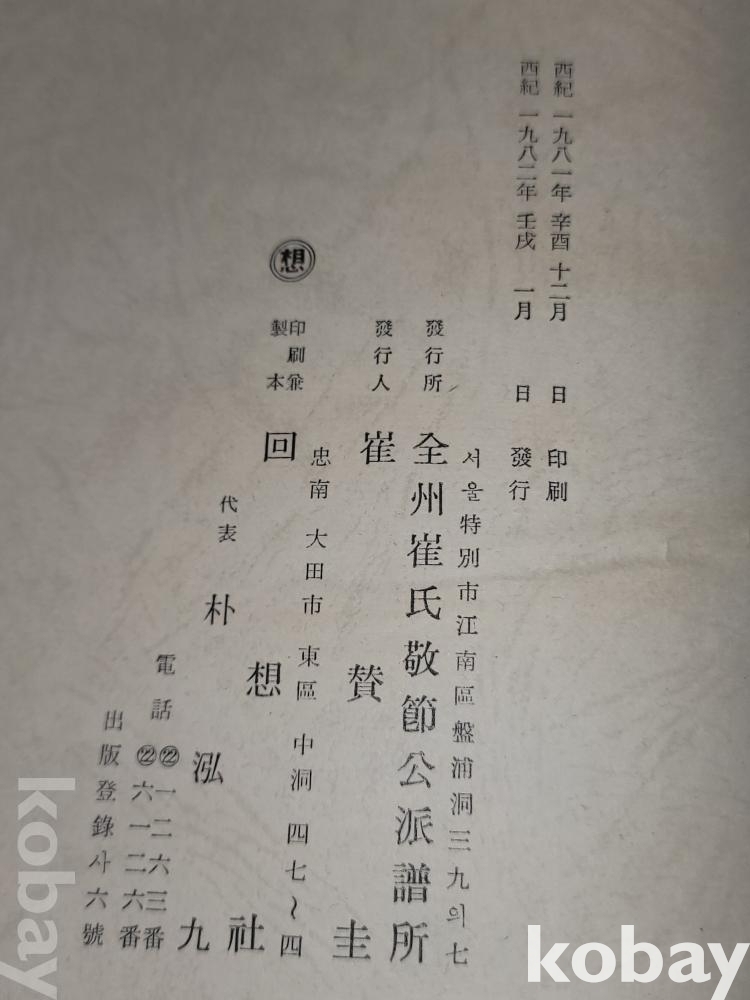 西紀 一九八一年 辛酉 十二月 日 印刷
西紀 一九八二年 壬戌 一月 日 發行
서울特別市江南區盤浦洞三九의七
發行所 全州崔氏敬節公派譜所
發行人 崔贊圭
忠南 大田市 東區 中洞 四七~四
想 印刷兼製本 回想社
代表 朴泓九
電話 ㉒一二六三番
㉒六一二六番
出版登錄사六號
kobay
kobay